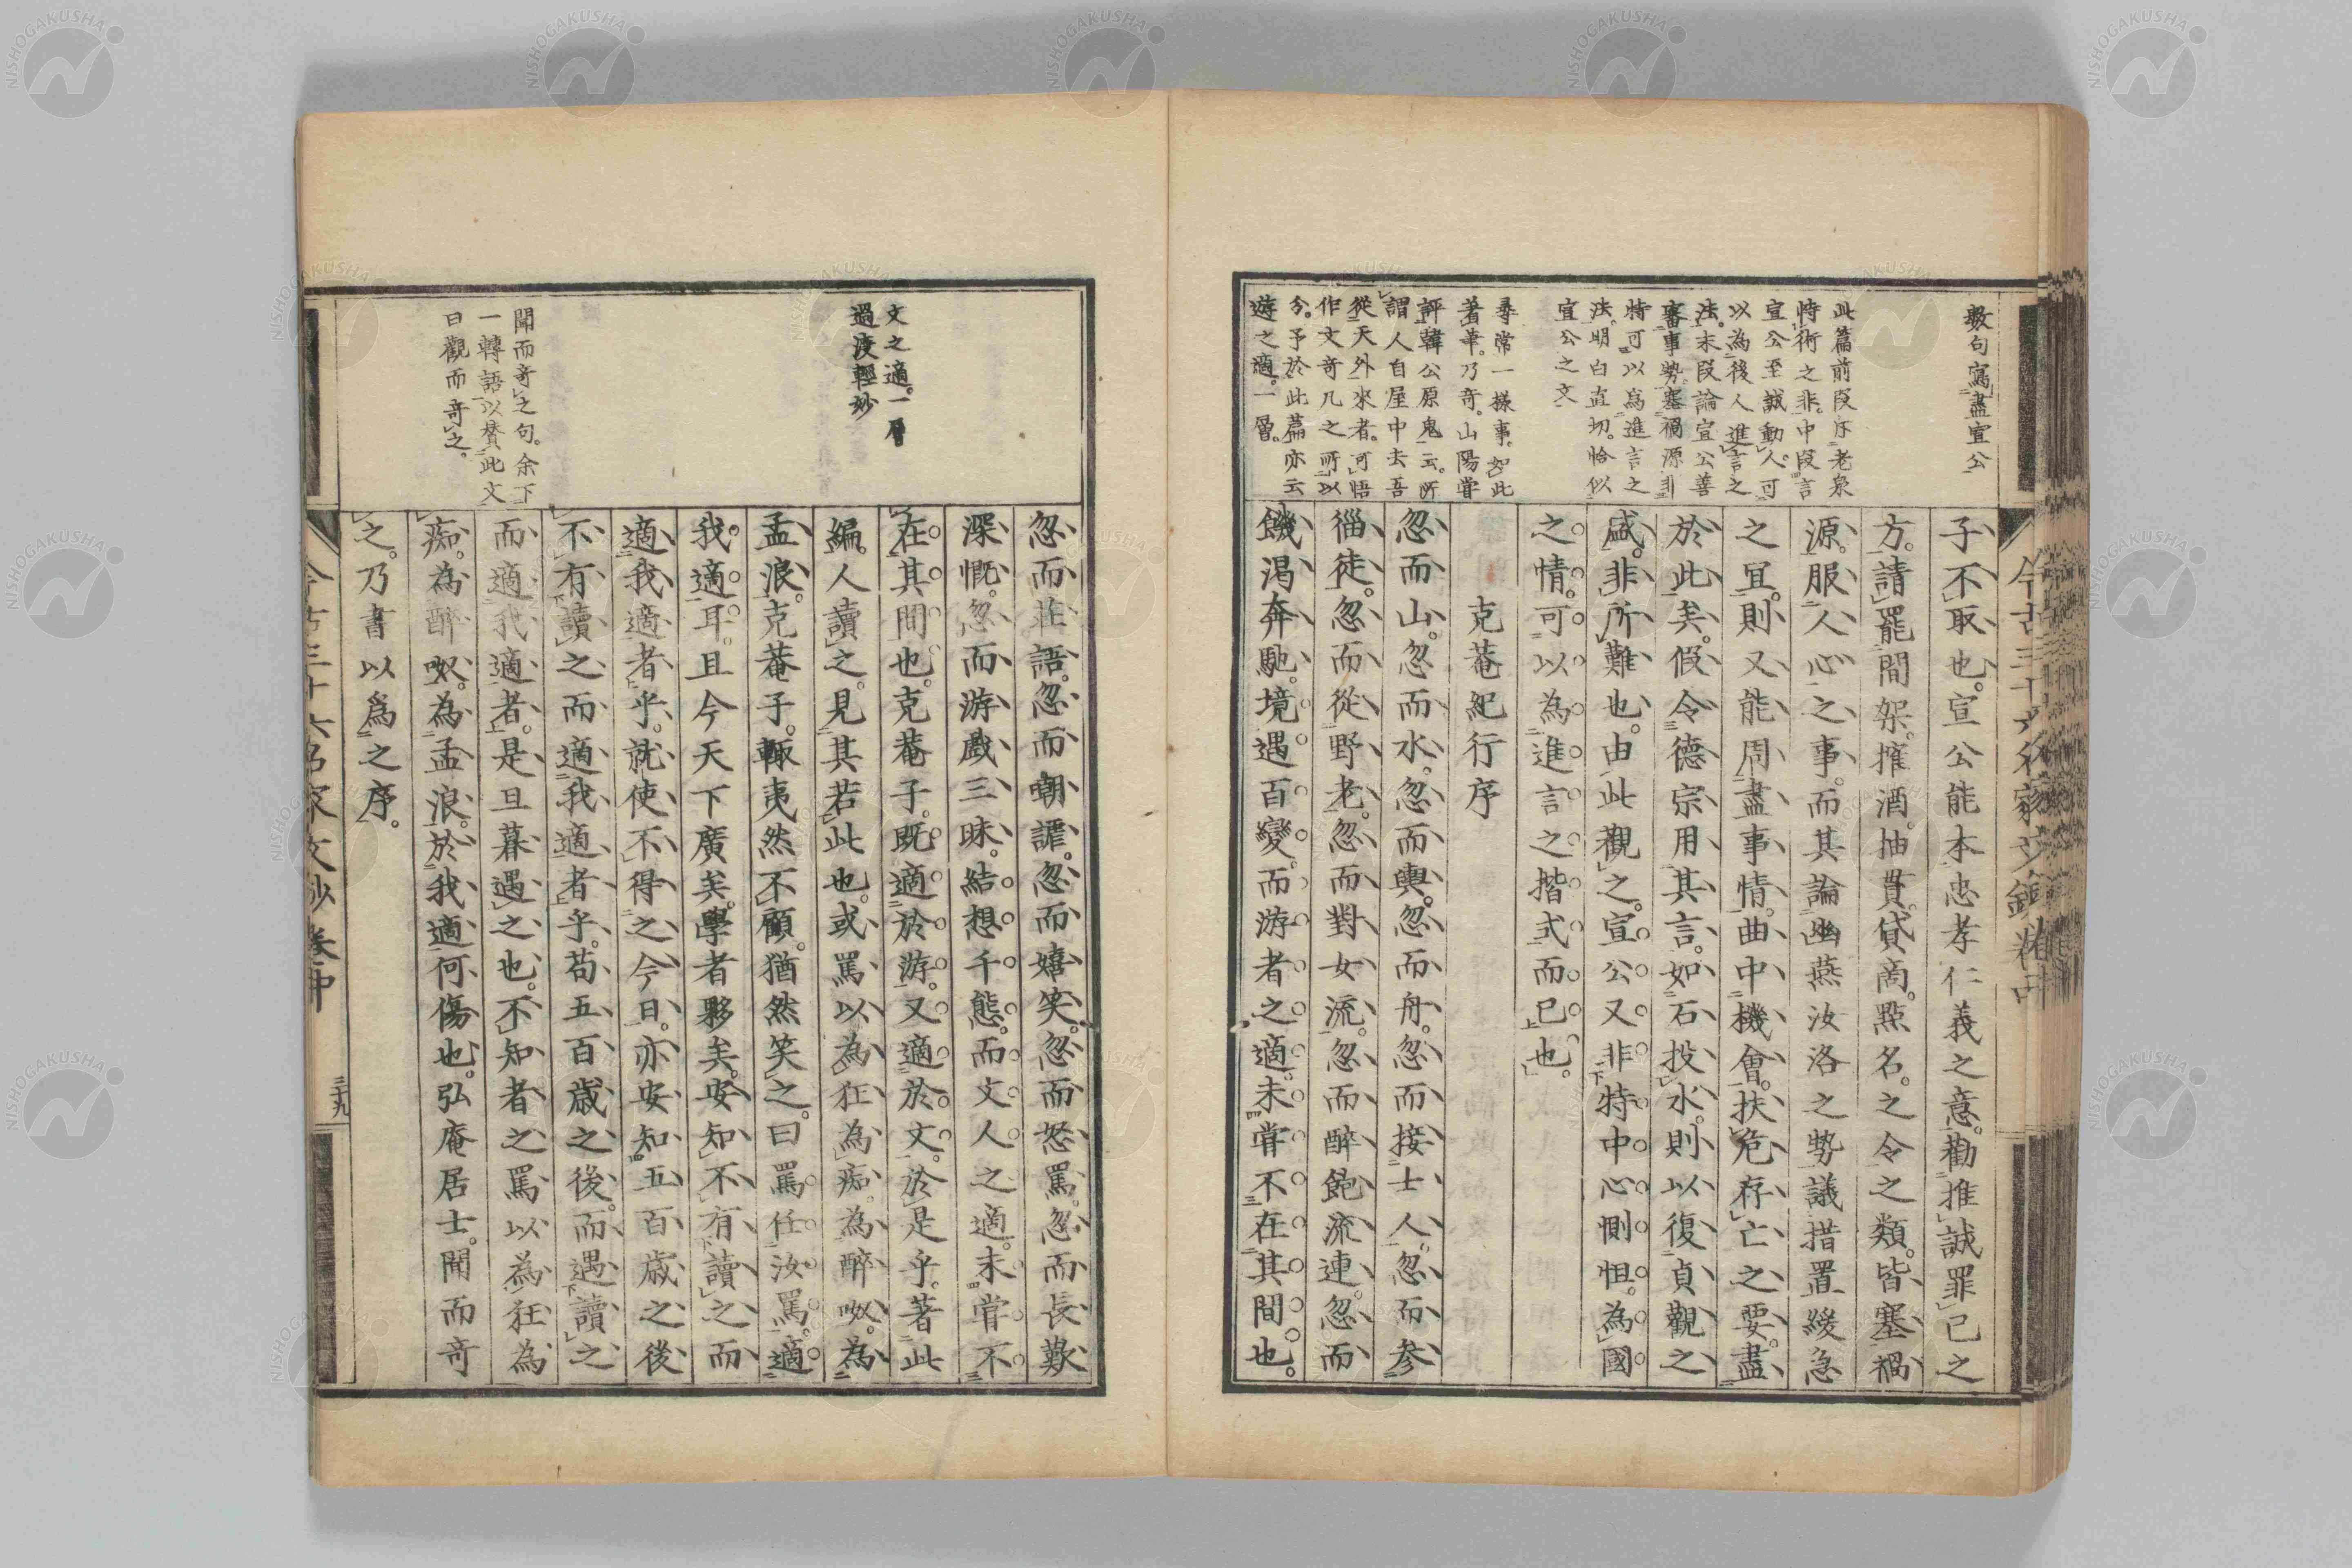 數句寫盡宣公
此篇前段斥老泉
恃術之非。中段言
宣公至誠動人。可
以為後人進言之
法。末段論宣公善
審事勢。塞禍源。非
特可以為進言之
法。明白直切。恰似
宣公之文
尋常一樣事。如此
著筆。乃奇。山陽嘗
評韓公原鬼云。所
謂人自屋中去吾
從天外來者。可悟
作文奇几之所以
今。予於此篇亦云
遊之適。一層。
子不取也。宣公能本忠孝仁義之意。勸推誠罪己之
方。請罷間架。搉酒。抽貫。貸商。點名。之令之類。皆塞禍
源。服人心之事。而其論幽燕汝洛之勢議措置緩急
之宜。則又能周盡事情。曲中機會。扶危存亡之要。盡
於此矣。假令德宗用其言。如石投水。則以復貞觀之
盛。非所難也。由此觀之。宣公又非特中心惻怛。為國
之情。可以為進言之楷式而已也。
克菴紀行序
忽而山。忽而水。忽而輿。忽而舟。忽而接士人。忽而參
緇徒。忽而從野老。忽而對女流。忽而醉飽流連。忽而
饑渴奔馳。境遇百變。而游者之適。未嘗不在其間也。
文之適。一層
過渡輕妙
聞而奇之句。余下
一轉語以贊此文
曰觀而奇之。
忽而莊語。忽而嘲謔。忽而嬉笑。忽而怒罵。忽而長歎
深慨。忽而游戲三昧。結想千態。而文人之適。未嘗不
在其間也。克菴子。既適於游。又適於文。於是乎。著此
編。人讀之。見其若此也。或罵以為狂為痴。為醉呶。為
孟浪。克菴子。輙夷然不顧。猶然笑之。曰罵任汝罵。適
我適耳。且今天下廣矣。學者夥矣。安知不有讀之而
適我適者乎。就使不得之今日。亦安知五百歲之後
不有讀之而適我適者乎。苟五百歲之後。而遇讀之
而適我適者。是旦暮遇之也。不知者之罵以為狂為
痴。為醉呶。為孟浪。於我適何傷也。弘庵居士。聞而奇
之。乃書以為之序。
今古三十六名家文鈔卷中
三十九